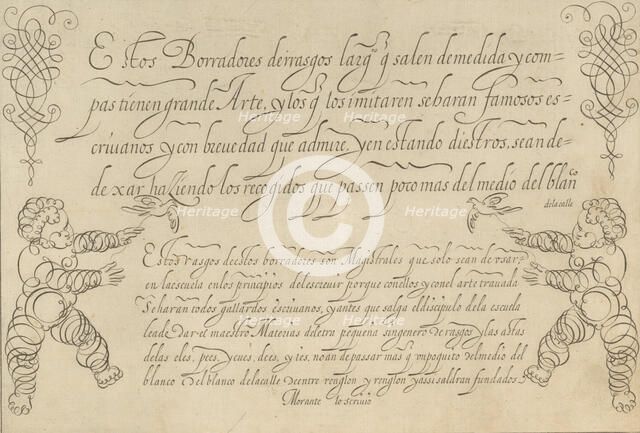 Estos Borradores de rrasgos largos q̃ salen de medida y com=
pas tienen grande Arte, y los q̃ los imitaren se haran famosos es=
criuanos y con breuedad que admire. Y en estando diestros, se an de=
de xar haziendo los recogidos que passen poco mas del medio del blanco
de la calle
Estos rasgos de estos borradores son Magistrales que solo se an de vsar=
en la escuela en los principios del escreuir porque con ellos y con el arte trauada
Se haran todos gallardos escriuanos, y antes que salga el discipulo de la escuela
le a de dar el maestro Materias de letra pequeña sin genero de rasgos y las astas
de las eles, pees, y cues, dees, y ies, no an de passar mas q̃ vn poquito del medio del
blanco. el blanco de la calle de entre renglon y renglon y assi saldran fundados.
Morante lo scriuio
Heritage
Heritage
Heritage
Heritage
Heritage
Heritage
Heritage
Heritage
Heritage